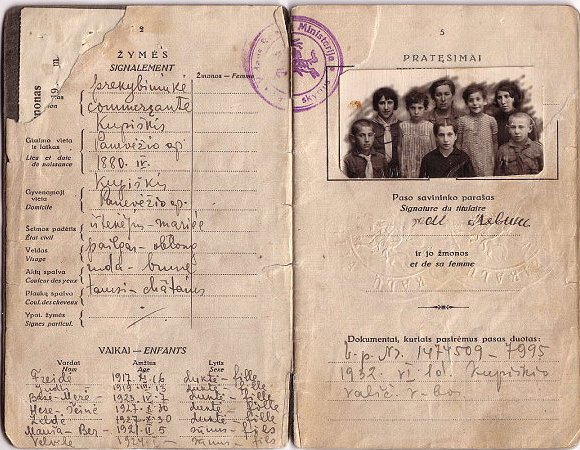 2
ŽYMĖS
SIGNALEMENT
Žmonos — Femme
prekybininkė
commerçante
Kupiškis
Gimimo vieta
ir laikas
Lieu et date
de naissance
Panevėžio ap.
1880. IV.
Kupiškis
Gyvenamoji
vieta
Domicile
Panevėžio ap.
Šeimos padėtis
État civil
ištekėjus - mariée
Veidas
Visage
pailgas - oblong
Akių spalva
Couleur des yeux
ruda - brune
Plaukų spalva
Coul. des cheveux
tamsi - châtains
Ypat. žymės
Signes particul.
VAIKAI — ENFANTS
Vardai
Nom
Amžius
Age
Lytis
Sexe
Freidė 1917. duktė - fille
Judis 1919. duktė - fille
Basė-Merė 1923. IV. 7 duktė - fille
Hese-Šeinė 1927. X. 30 duktė - fille
Zeldė 1927. X. 30 duktė - fille
Mausa-Ber 1921. II. 5 sūnus - fils
Velvelė 1924. sūnus - fils
Ministerija
5
PRATĘSIMAI
Paso savininko parašas
Signature du titulaire
ir jo žmonos
et de sa femme
Dokumentai, kuriais pasirėmus pasas duotas:
v. p. Nr. 1474509 - 7995
1932. VI. 10. Kupiškio
valsč. v-bos